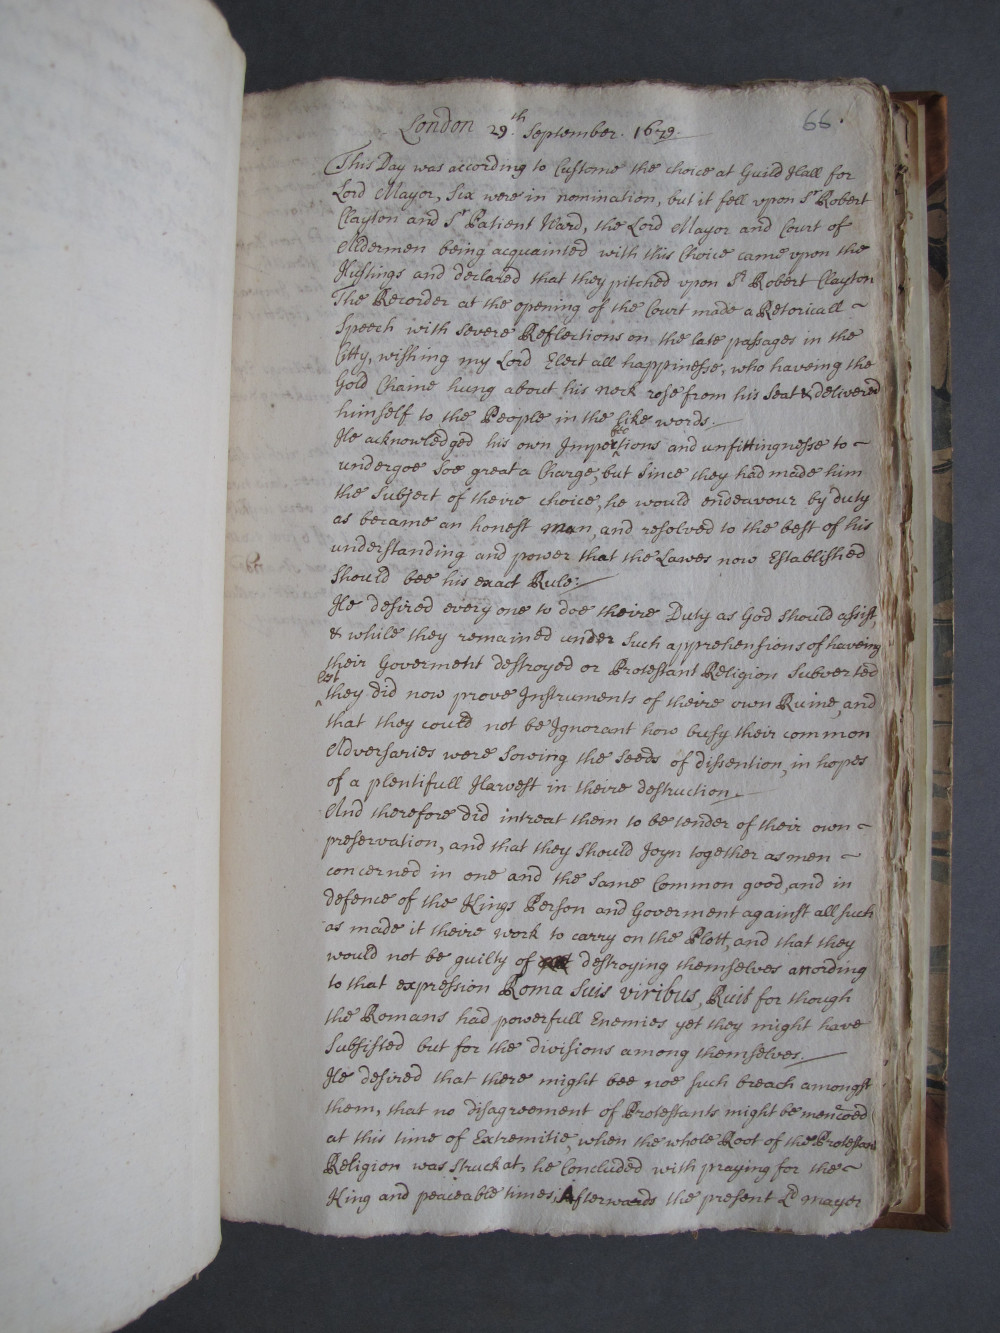 66.
London 29.th September. 1679.
This Day was according to Custome the choice at Guild Hall for
Lord Mayor, Six were in nomination, but it fell vpon Sr Robert
Clayton and Sr Patient Ward, the Lord Mayor and Court of
Aldermen being acquainted with this Choice came vpon the
Hustings and declared that they pitched vpon Sr Robert Clayton
The Recorder at the opening of the Court made a Retoricall ~
Speech with severe Reflections on the late passages in the
Citty, wishing my Lord Elect all happinesse, who haveing the
Gold Chaine hung about his neck rose from his Seat & delivered
himself to the People in the like words.
He acknowledged his own Imperfections and unfittingnesse to ~
undergoe Soe great a Charge, but Since they had made him
the Subject of theire choice, he would endeavour by duty
as became an honest man, and resolved to the best of his
understanding and power that the Lawes now Established
Should bee his exact Rule:
He desired every one to doe theire Duty as God should assist,
& while they remained under Such apprehensions of haveing
their Goverment destroyed or Protestant Religion Subverted
lest they did now prove Instruments of theire own Ruine, and
that they could not be Ignorant how busy their common
Adversaries were Sowing the Seeds of dissention, in hopes
of a plentifull Harvest in theire destruction.
And therefore did intreat them to be tender of their own ~
preservation, and that they Should Joyn together as men ~
concerned in one and the Same Common good, and in
defence of the Kings Person and Goverment against all Such
as made it theire work to carry on the Plott, and that they
would not be guilty of destroying themselves according
to that expression Roma Suis viribus, Ruit for though
the Romans had powerfull Enemies yet they might have
Subsisted but for the divisions among themselves.
He desired that there might bee noe Such breach amongst
them, that no disagreement of Protestants might be mencoed
at this time of Extremitie, when the whole Root of the Protestant
Religion was Struck at, he Concluded with praying for the ~
King and peaceable times, Afterwards the present Ld mayor